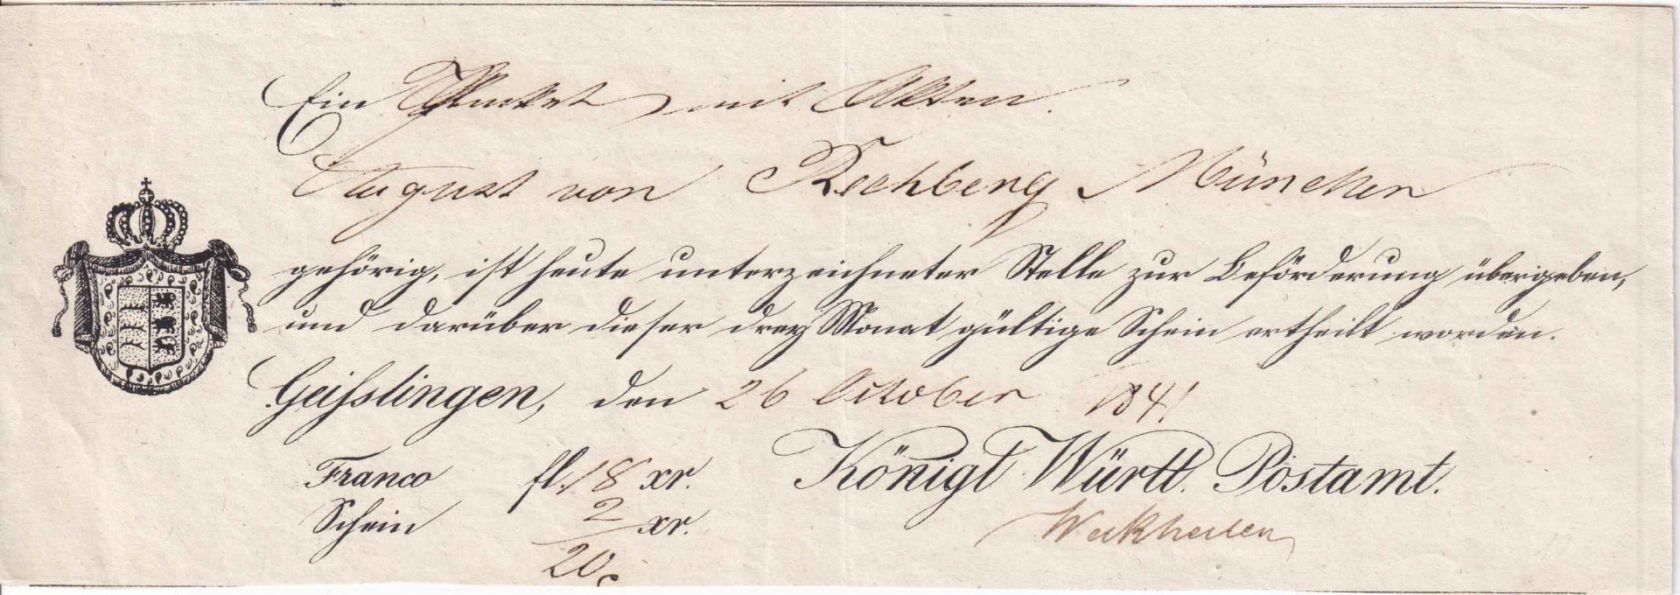 Ein Packet mit Akten.
August von Rechberg München
gehörig, ist heute unterzeichneter Stelle zur Beförderung übergeben,
und darüber dieser drey Monat gültige Schein ertheilt worden.
Geisslingen, den 26 October 1841
Franco fl. 18 xr. Königl Württ. Postamt.
Schein 2 xr.
20